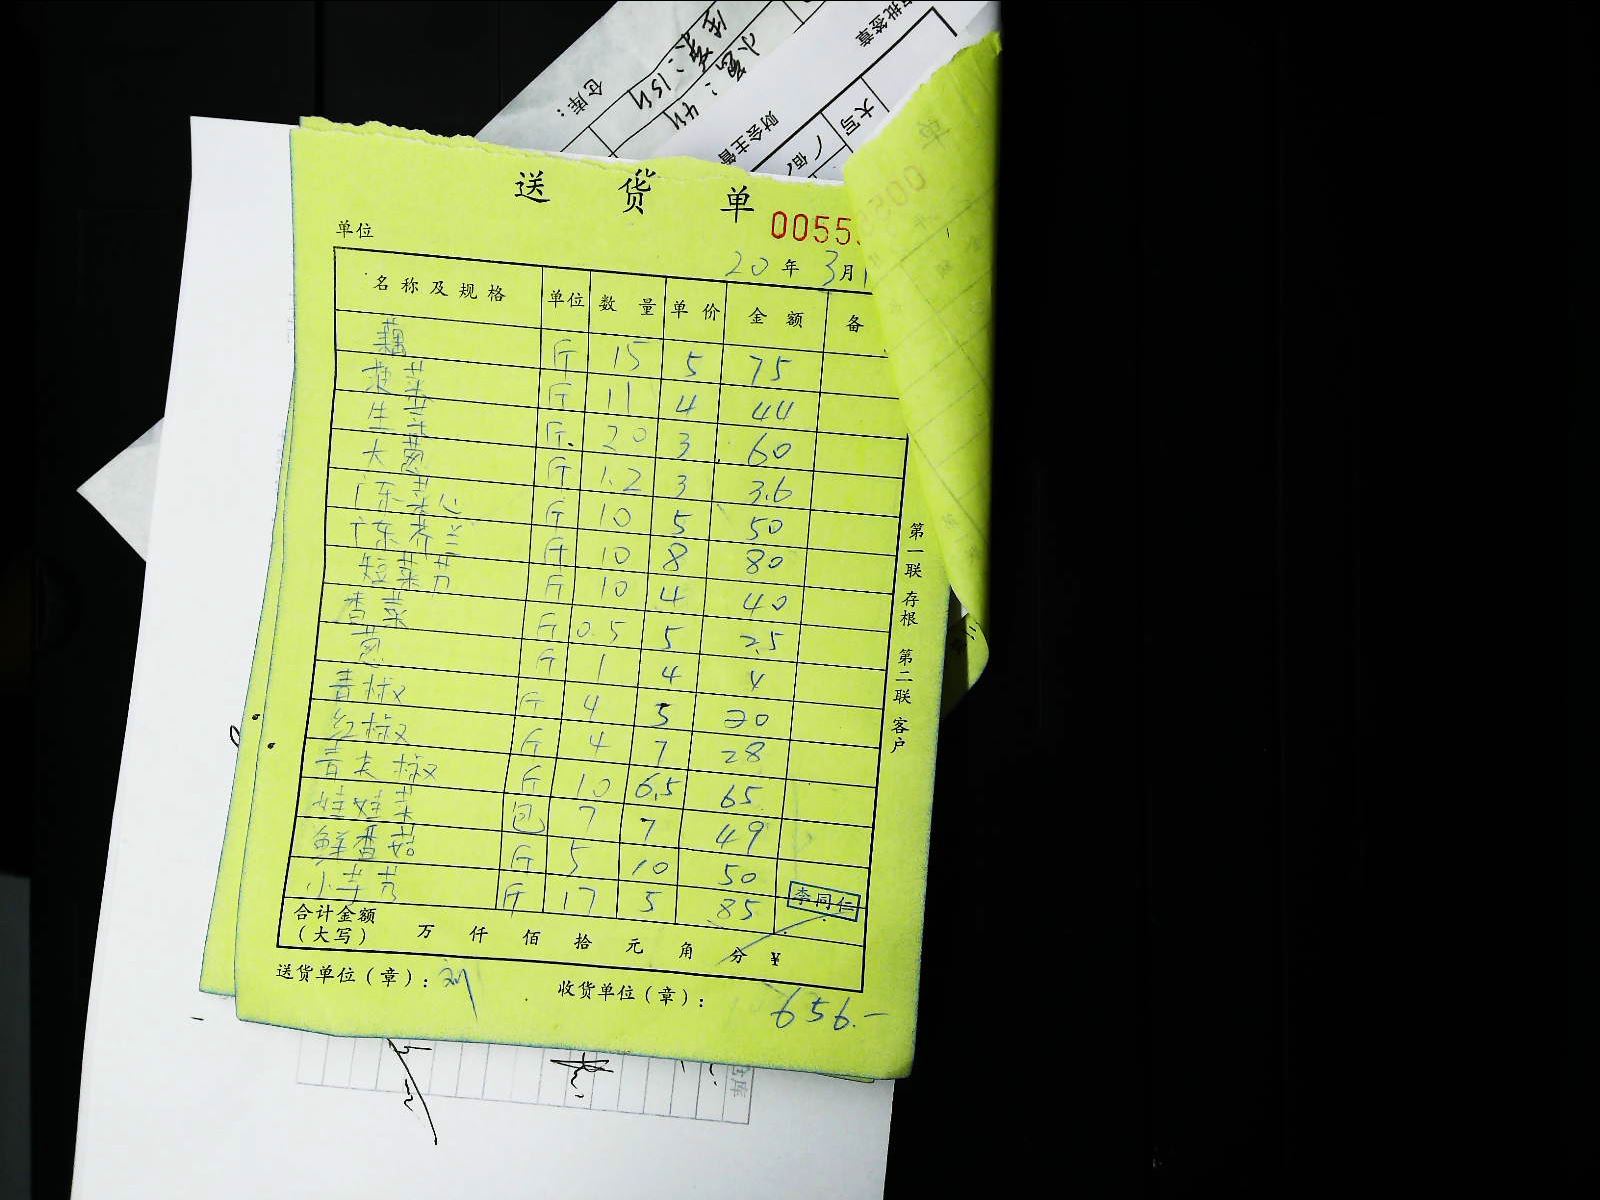 仓库：
小葱：4斤
审批签章
财会主管
大写
佰
送货单
0055
单位
20 年 3月1
名称及规格 单位 数量 单价 金额 备
藕 斤 15 5 75
菠菜 斤 11 4 44
生菜 斤 20 3 60
大葱 斤 1.2 3 3.6
广东菜心 斤 10 5 50
广东芥兰 斤 10 8 80
短菜苔 斤 10 4 40
香菜 斤 0.5 5 2.5
葱 斤 1 4 4
青椒 斤 4 5 20
红椒 斤 4 7 28
青尖椒 斤 10 6.5 65
娃娃菜 包 7 7 49
鲜香菇 斤 5 10 50
小芋艿 斤 17 5 85
李同仁
合计金额
（大写） 万 仟 佰 拾 元 角 分 ¥
送货单位（章）：刘 收货单位（章）：
656.-
第一联 存根 第二联 客户
仓库